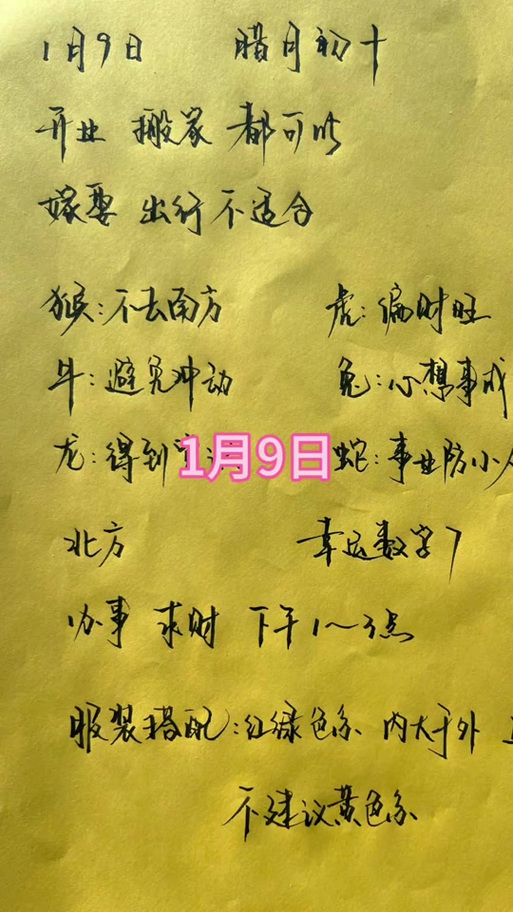 1月9日 腊月初十
开业 搬家 都可以
嫁娶 出行 不适合
猴:不去南方 虎:偏财旺
牛:避免冲动 兔:心想事成
龙:得到 蛇:事业防小人
1月9日
北方 幸运数字7
办事 求财 下午1~3点
服装搭配:红绿色系 内大于外
不建议黄色系